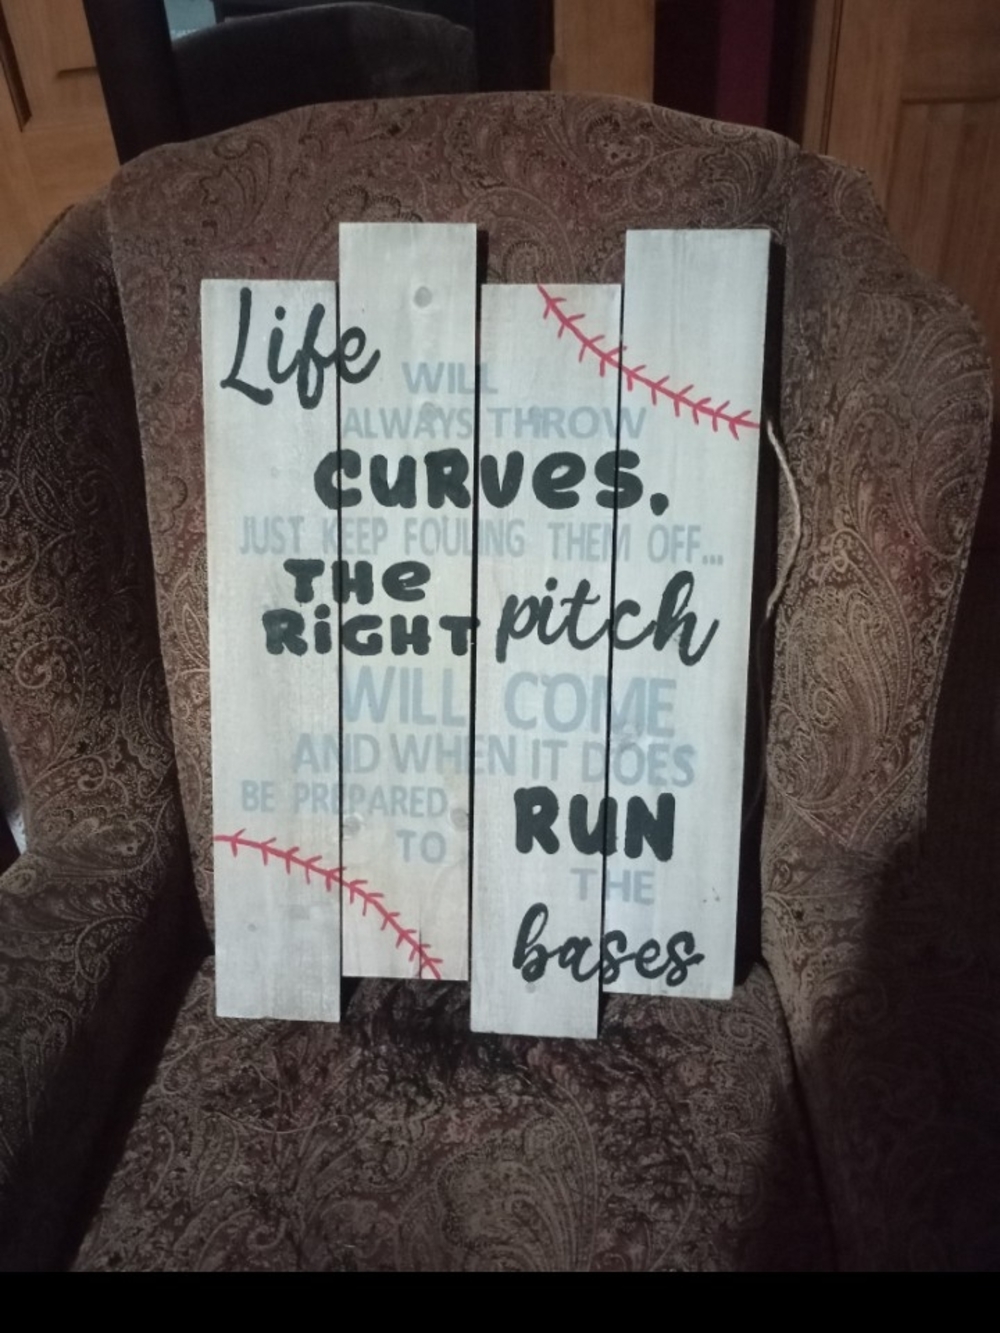 Life
WILL
ALWAYS THROW
CURVES.
JUST KEEP FOULING THEM OFF...
THE
RIGHT pitch
WILL COME
AND WHEN IT DOES
BE PREPARED
TO RUN
THE
bases